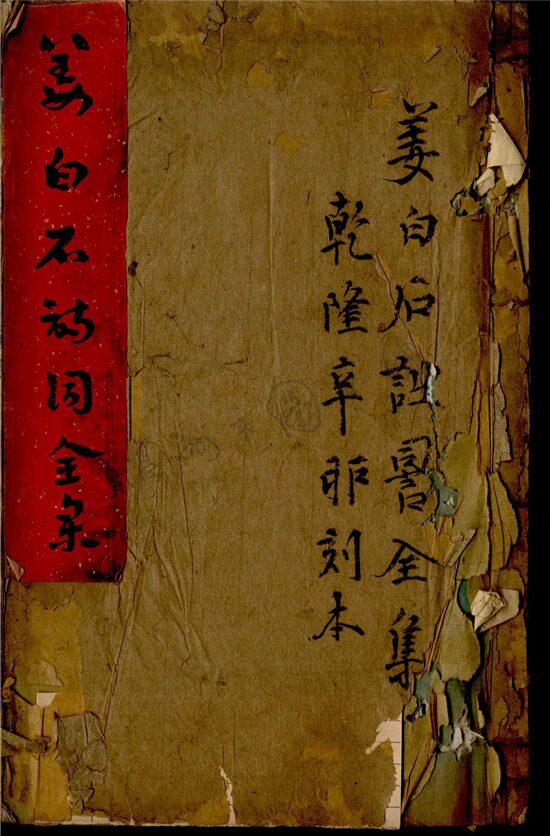 姜白石詩詞全集
乾隆辛卯刻本
姜白石詩词全集